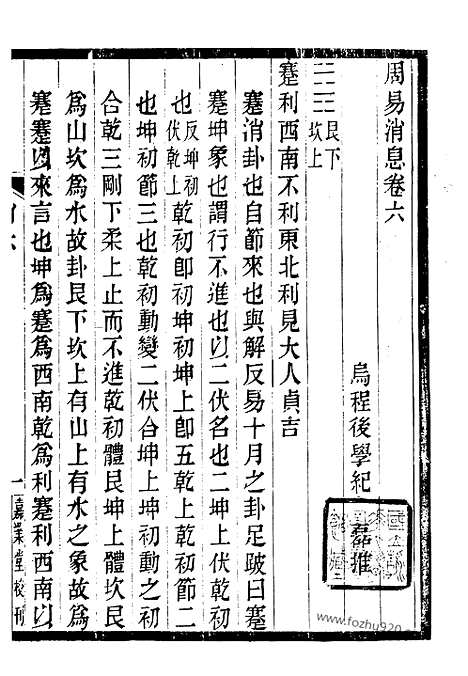 周易消息卷六
烏程後學紀磊推
艮下
坎上
蹇利西南不利東北利見大人貞吉
蹇消卦也自節來也與解反易十月之卦足跛曰蹇
蹇坤象也謂行不進也以二伏名也二坤上伏乾初
也反坤初伏乾上乾初卽初坤初坤上卽五乾上乾初節二
也坤初節三也乾初動變二伏合坤上坤初動變三伏
合乾三剛下柔上止而不進乾初體艮坤上體坎艮
爲山坎爲水故卦艮下坎上有山上有水之象故爲
蹇蹇以來言也坤爲蹇爲西南乾爲利蹇利西南以
一
嘉業堂校刊
www.fozhu920.com